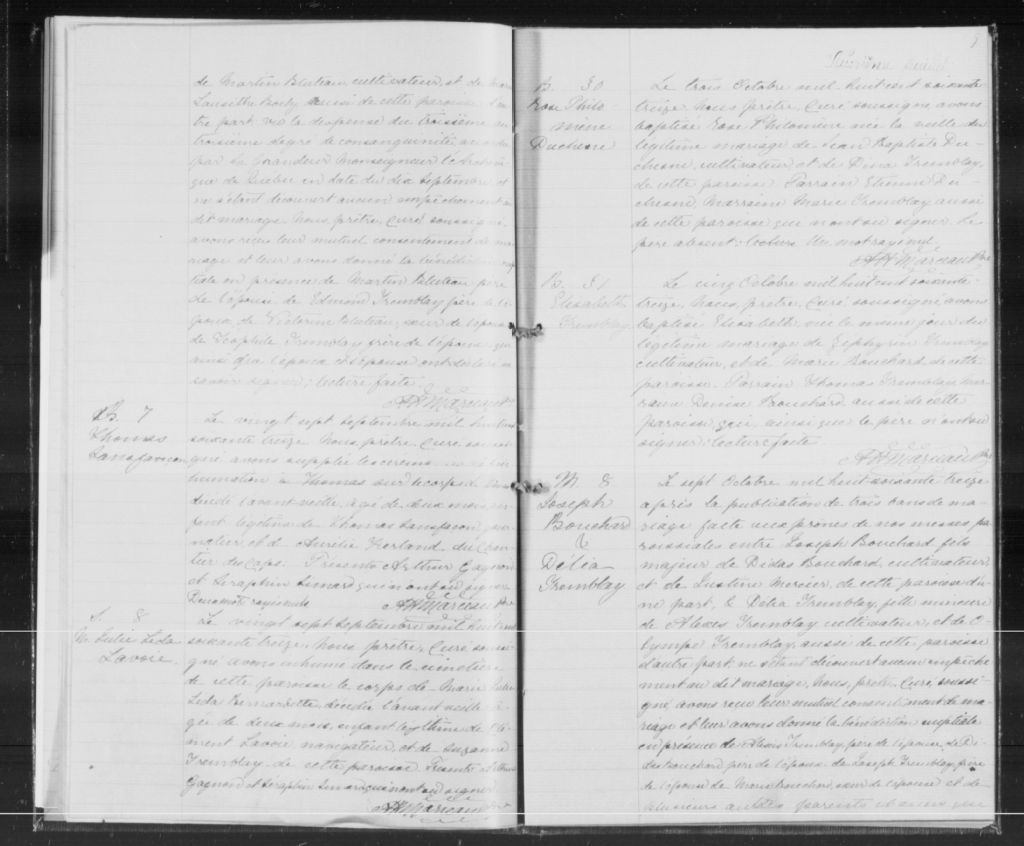 de Martin Bluteau cultivateur, et de
aussi de cette paroisse
tre part vu la dispense du troisième au
troisième degré de consanguinité accordée
par Sa Grandeur Monseigneur l'Archevê-
que de Québec en date du dix Septembre et
ne s'étant découvert aucun empêchement au
dit mariage Nous, prêtre, Curé soussigné,
avons reçu leur mutuel consentement de ma-
riage et leur avons donné la bénédiction nup-
tiale en présence de Martin Bluteau père
de l'épouse de Edmond Tremblay père de l'é-
poux, de Victorine Bluteau, sœur de l'épouse
de Théophile Tremblay frère de l'époux qui
ainsi que l'époux et l'épouse ont déclaré ne
savoir signer; lecture faite.
Ptre
7
Thomas
Lansfaçon
Le vingt sept Septembre mil huit cent
soixante treize, Nous, prêtre, Curé soussi-
gné avons suppléé les cérémonies de l'in-
humation à Thomas sur le corps de
décédé l'avant veille, âgé de deux mois, en-
fant légitime de Thomas Lansfaçon, jour-
nalier, et d' Aurélie Forland
du Cap. Présents Arthur Gagnon
et Séraphin Simard qui n'ont su signer.
Deux mots rayés nuls
Ptre
S. 8
M. Lida
Lavoie.
Le vingt sept Septembre mil huit cent
soixante treize, Nous, prêtre, Curé sous-
gné avons inhumé dans le cimetière
de cette paroisse le corps de Marie
Leda Henriette, décédée l'avant veille â-
gée de deux mois, enfant légitime de Clé-
ment Lavoie, navigateur, et de Suzanne
Tremblay de cette paroisse. Présents Arthur
Gagnon et Séraphin Simard qui n'ont su signer
Ptre
9
B. 50
Rose Philo-
mène
Duchesne
Le trois Octobre mil huit cent soixante
treize Nous, prêtre, Curé soussigné, avons
baptisé Rose Philomène née la veille du
légitime mariage de Jean Baptiste Du-
chesne, cultivateur et de Dina Tremblay,
de cette paroisse. Parrain Etienne Du-
chesne, Marraine Marie Tremblay aussi
de cette paroisse qui n'ont su signer. Le
père absent; lecture. Un mot rayé nul.
Ptre
B. 51
Elisabeth
Tremblay
Le cinq Octobre mil huit cent soixante
treize, Nous, prêtre, Curé soussigné avons
baptisé Elisabeth, née le même jour du
légitime mariage de Zephyrin Tremblay
cultivateur, et de Marie Bouchard de cette
paroisse. Parrain Thomas Tremblay Mar-
raine Denise Bouchard aussi de cette
paroisse qui, ainsi que le père n'ont su
signer; lecture faite
Ptre
M. 8
Joseph
Bouchard
&
Délia
Tremblay
Le sept Octobre mil huit soixante treize
après la publication de trois bans de ma-
riage faite aux prônes de nos messes pa-
roissiales entre Joseph Bouchard fils
majeur de Didas Bouchard, cultivateur,
et de Justine Mercier, de cette paroisse d'u-
ne part, & Délia Tremblay, fille mineure
de Alexis Tremblay cultivateur, et de O-
lympe Tremblay, aussi de cette paroisse
d'autre part ne s'étant découvert aucun empêche-
ment au dit mariage, Nous, prêtre, Curé, soussi-
gné, avons reçu leur mutuel consentement de ma-
riage et leur avons donné la bénédiction nuptiale
en présence de Alexis Tremblay, père de l'épouse, de Di-
das Bouchard père de l'époux de Joseph Tremblay, frère
de l'épouse de Bouchard, sœur de l'époux et de
plusieurs autres parents et amis qui